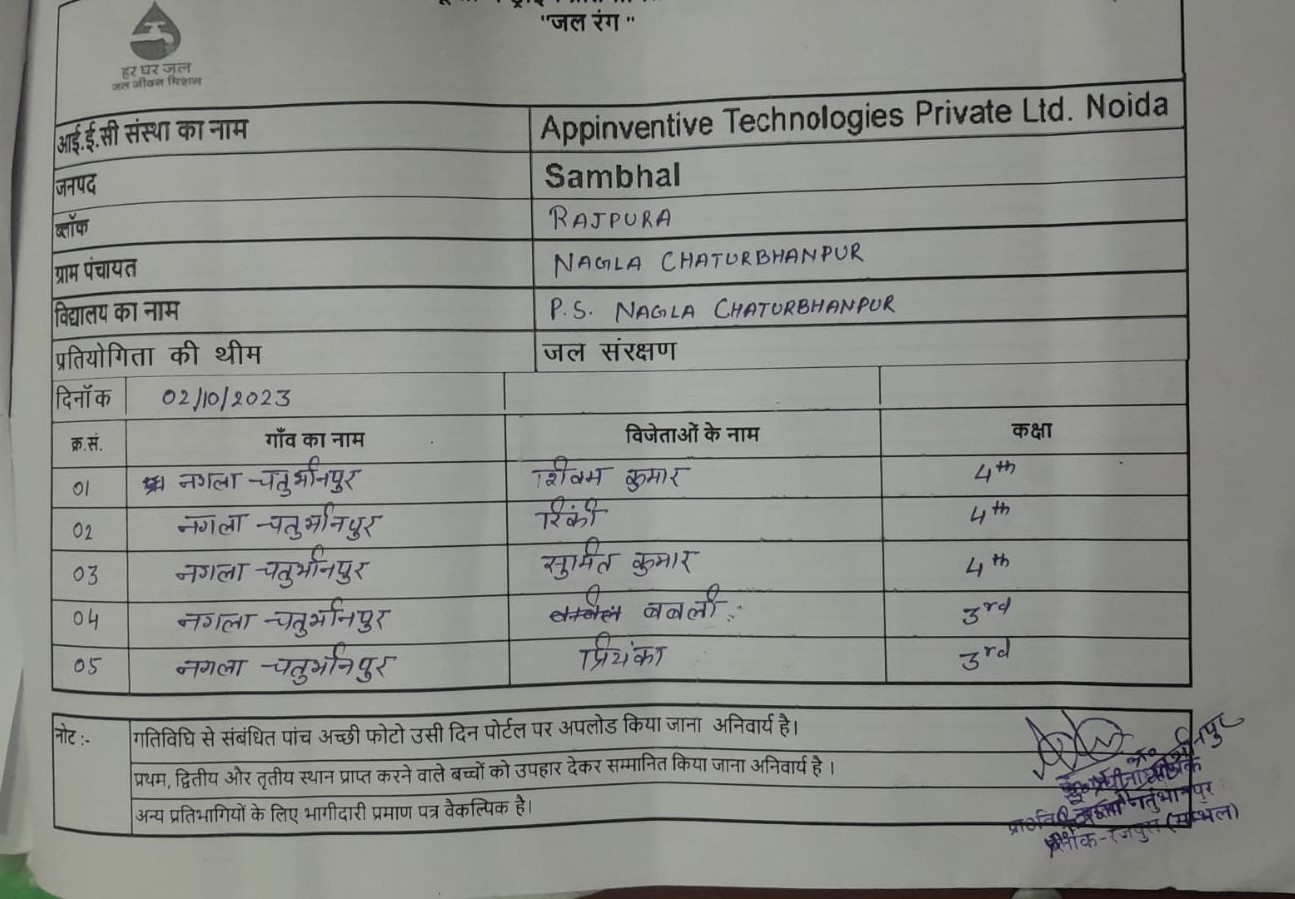 "जल रंग"
हर घर जल
जल जीवन मिशन
आई.ई.सी संस्था का नाम Appinventive Technologies Private Ltd. Noida
जनपद Sambhal
ब्लॉक RAJPURA
ग्राम पंचायत NAGLA CHATURBHANPUR
विद्यालय का नाम P.S. NAGLA CHATURBHANPUR
प्रतियोगिता की थीम जल संरक्षण
दिनॉक 02/10/2023
क्र.सं. गाँव का नाम विजेताओं के नाम कक्षा
01 नगला चतुर्भानपुर शिवम कुमार 4th
02 नगला चतुर्भानपुर रिंकी 4th
03 नगला चतुर्भानपुर सुमित कुमार 4th
04 नगला चतुर्भानपुर बबली 3rd
05 नगला चतुर्भानपुर प्रियंका 3rd
नोट :- गतिविधि से संबंधित पांच अच्छी फोटो उसी दिन पोर्टल पर अपलोड किया जाना अनिवार्य है।
प्रथम, द्वितीय और तृतीय स्थान प्राप्त करने वाले बच्चों को उपहार देकर सम्मानित किया जाना अनिवार्य है ।
अन्य प्रतिभागियों के लिए भागीदारी प्रमाण पत्र वैकल्पिक है।
ब्लॉक-रजपुरा (सम्भल)